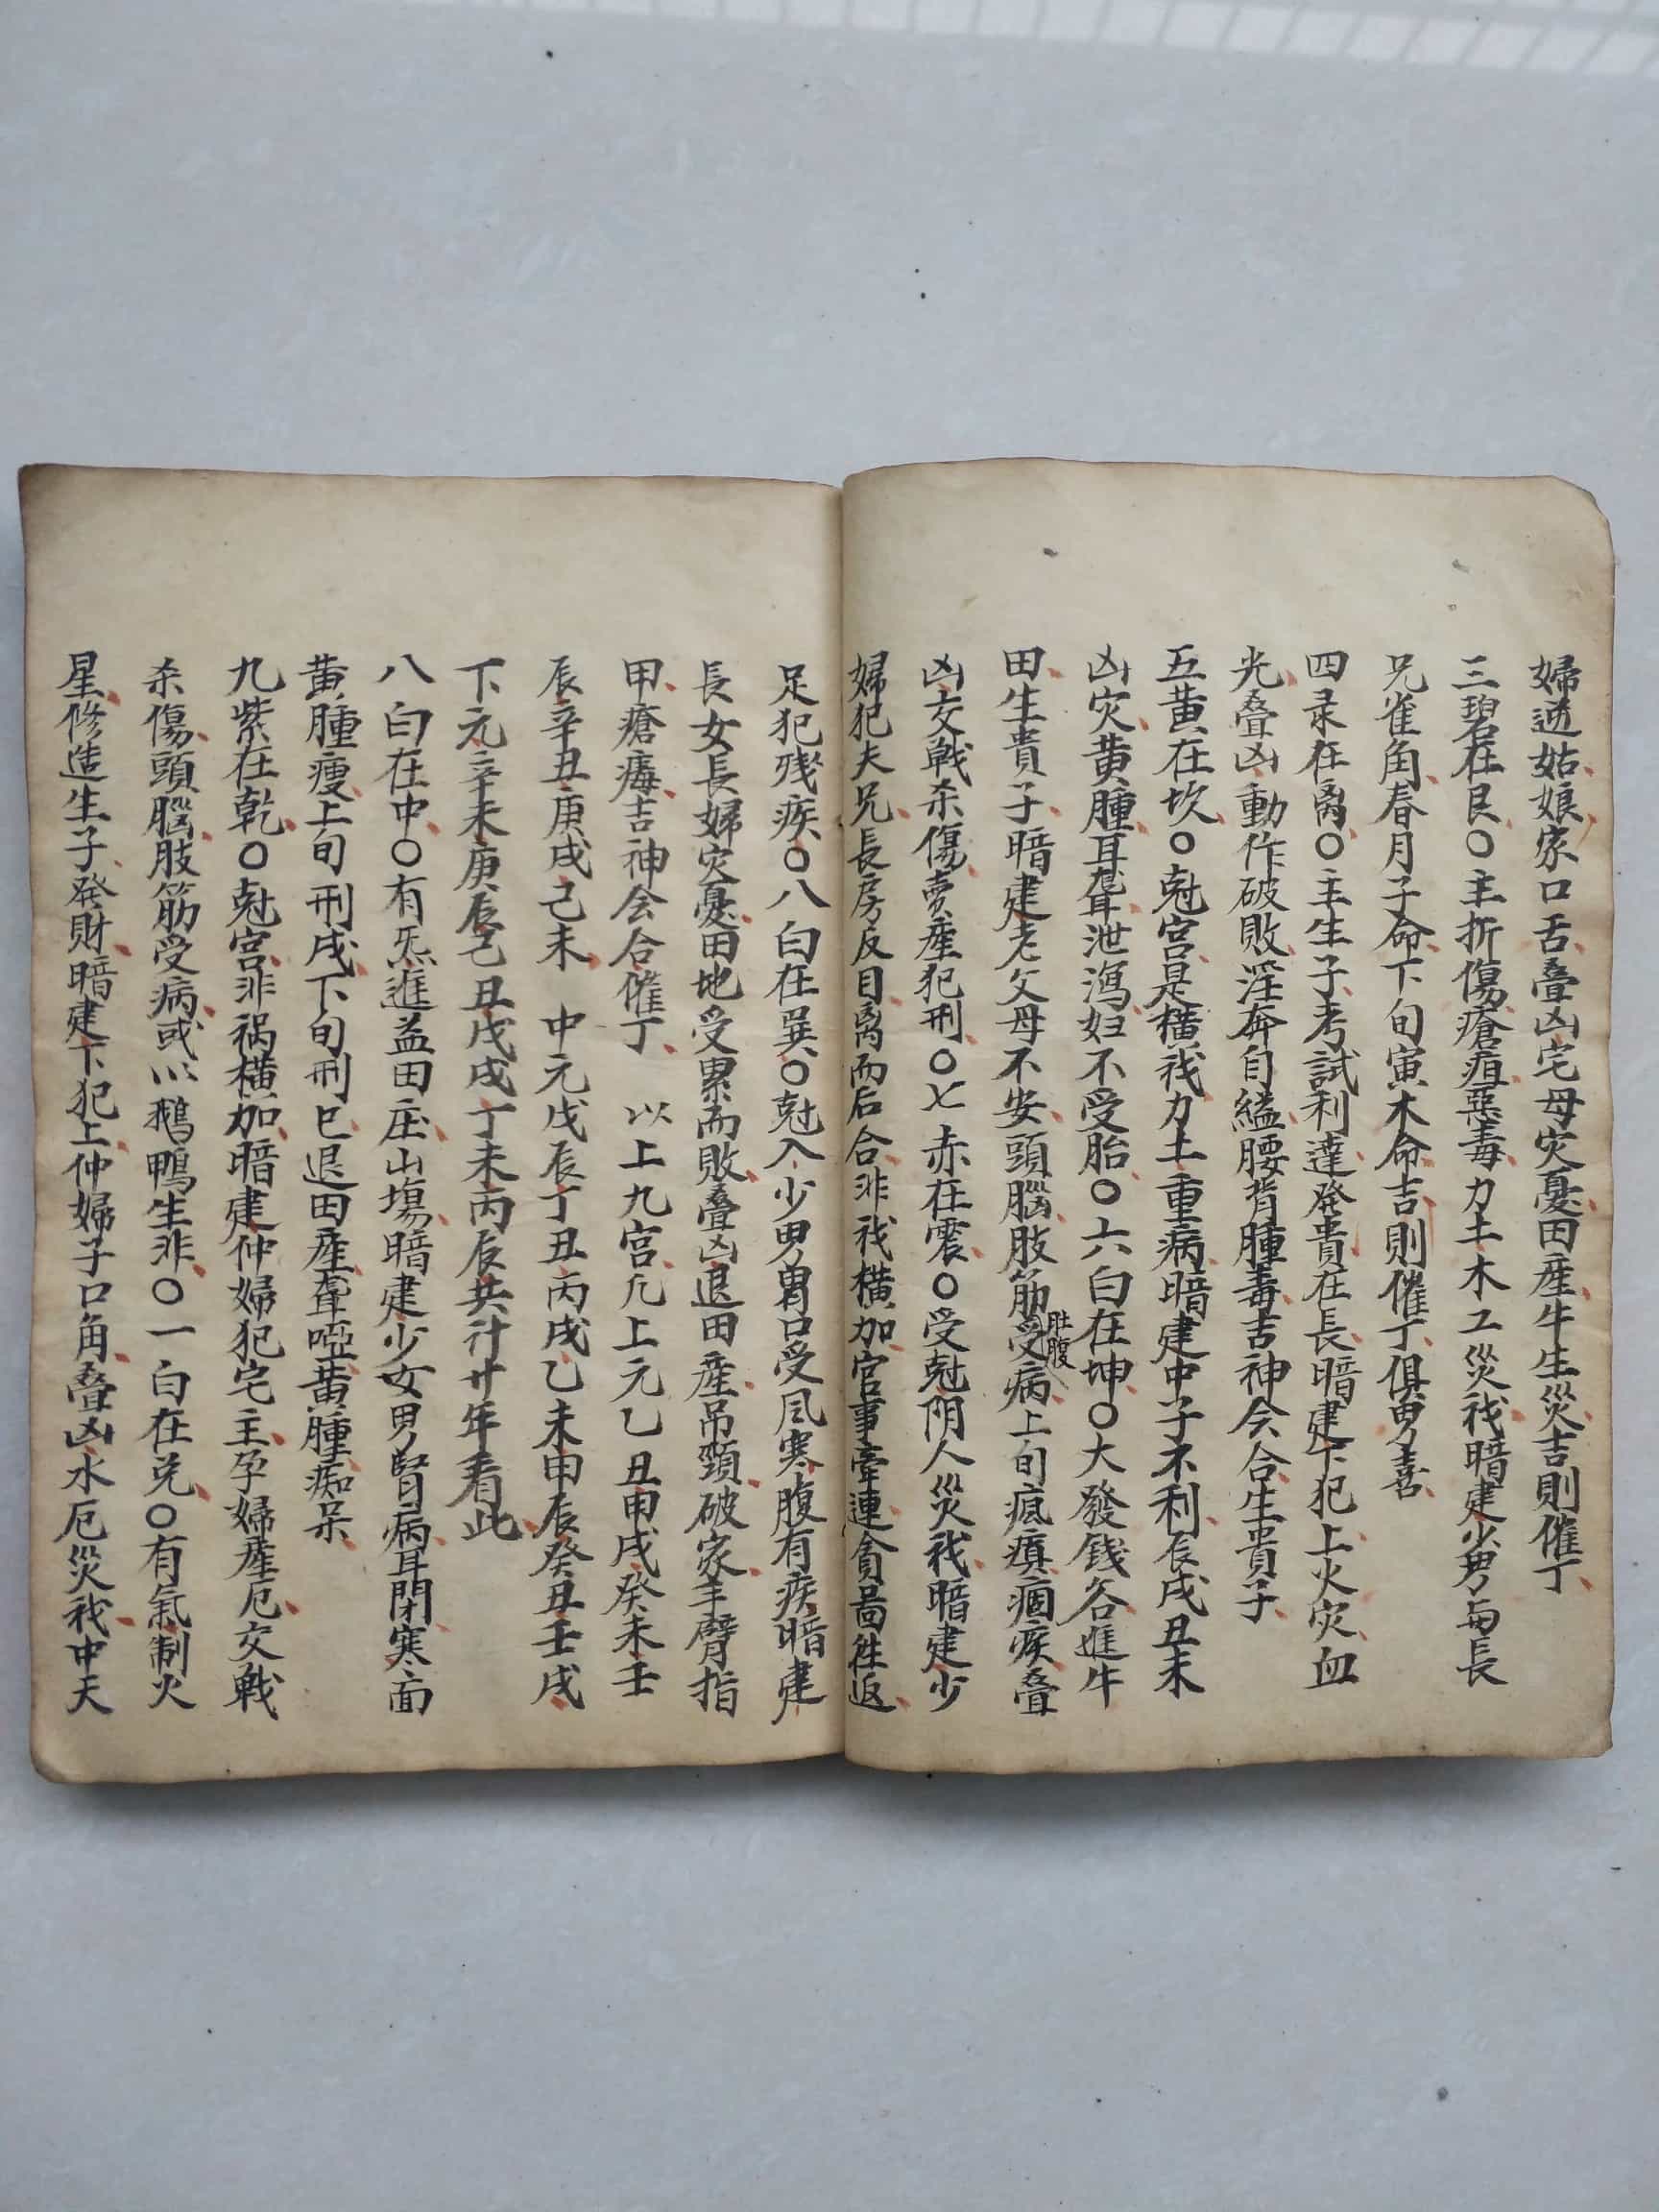 婦逆姑娘家口舌叠凶宅母灾憂田産牛生災吉則催丁
三碧在艮〇主折傷瘡疽惡毒力土木工災我暗建少男与長
兄雀角春月子命下旬寅木命吉則催丁俱男喜
四录在离〇主生子考試利達發貴在長暗建下犯上火灾血
光叠凶動作破敗淫奔自縊腰背腫毒吉神会合生貴子
五黄在坎〇尅宫是橫我力土重病暗建中子不利辰戌丑未
凶灾黄腫耳聋泄瀉妇不受胎〇六白在坤〇大發錢谷進牛
田生貴子暗建老父母不安頭腦肢筋受病上旬瘋癲痼疾叠
肚腹
凶交戰杀傷賣産犯刑〇七赤在震〇受尅阴人災我暗建少
婦犯夫兄長房反目离而后合非我橫加官事牽連貪啚往返
足犯殘疾〇八白在巽〇尅入少男胃口受风寒腹有疾暗建
長女長婦灾憂田地受累而敗叠凶退田産吊頸破家手臂指
甲瘡毒吉神会合催丁 以上九宫凡上元乙丑甲戌癸未壬
辰辛丑庚戌己未 中元戊辰丁丑丙戌乙未甲辰癸丑壬戌
下元辛未庚辰己丑戊戌丁未丙辰共计廿年看此
八白在中〇有炁進益田庄山塲暗建少女男腎病耳閉寒面
黄腫瘦上旬刑戌下旬刑巳退田産聋啞黄腫痴呆
九紫在乾〇尅宫非祸橫加暗建仲婦犯宅主孕婦産厄交戰
杀傷頭腦肢筋受病或以鵝鴨生非〇一白在兑〇有氣制火
星修造生子發財暗建下犯上仲婦子口角叠凶水厄災我中天